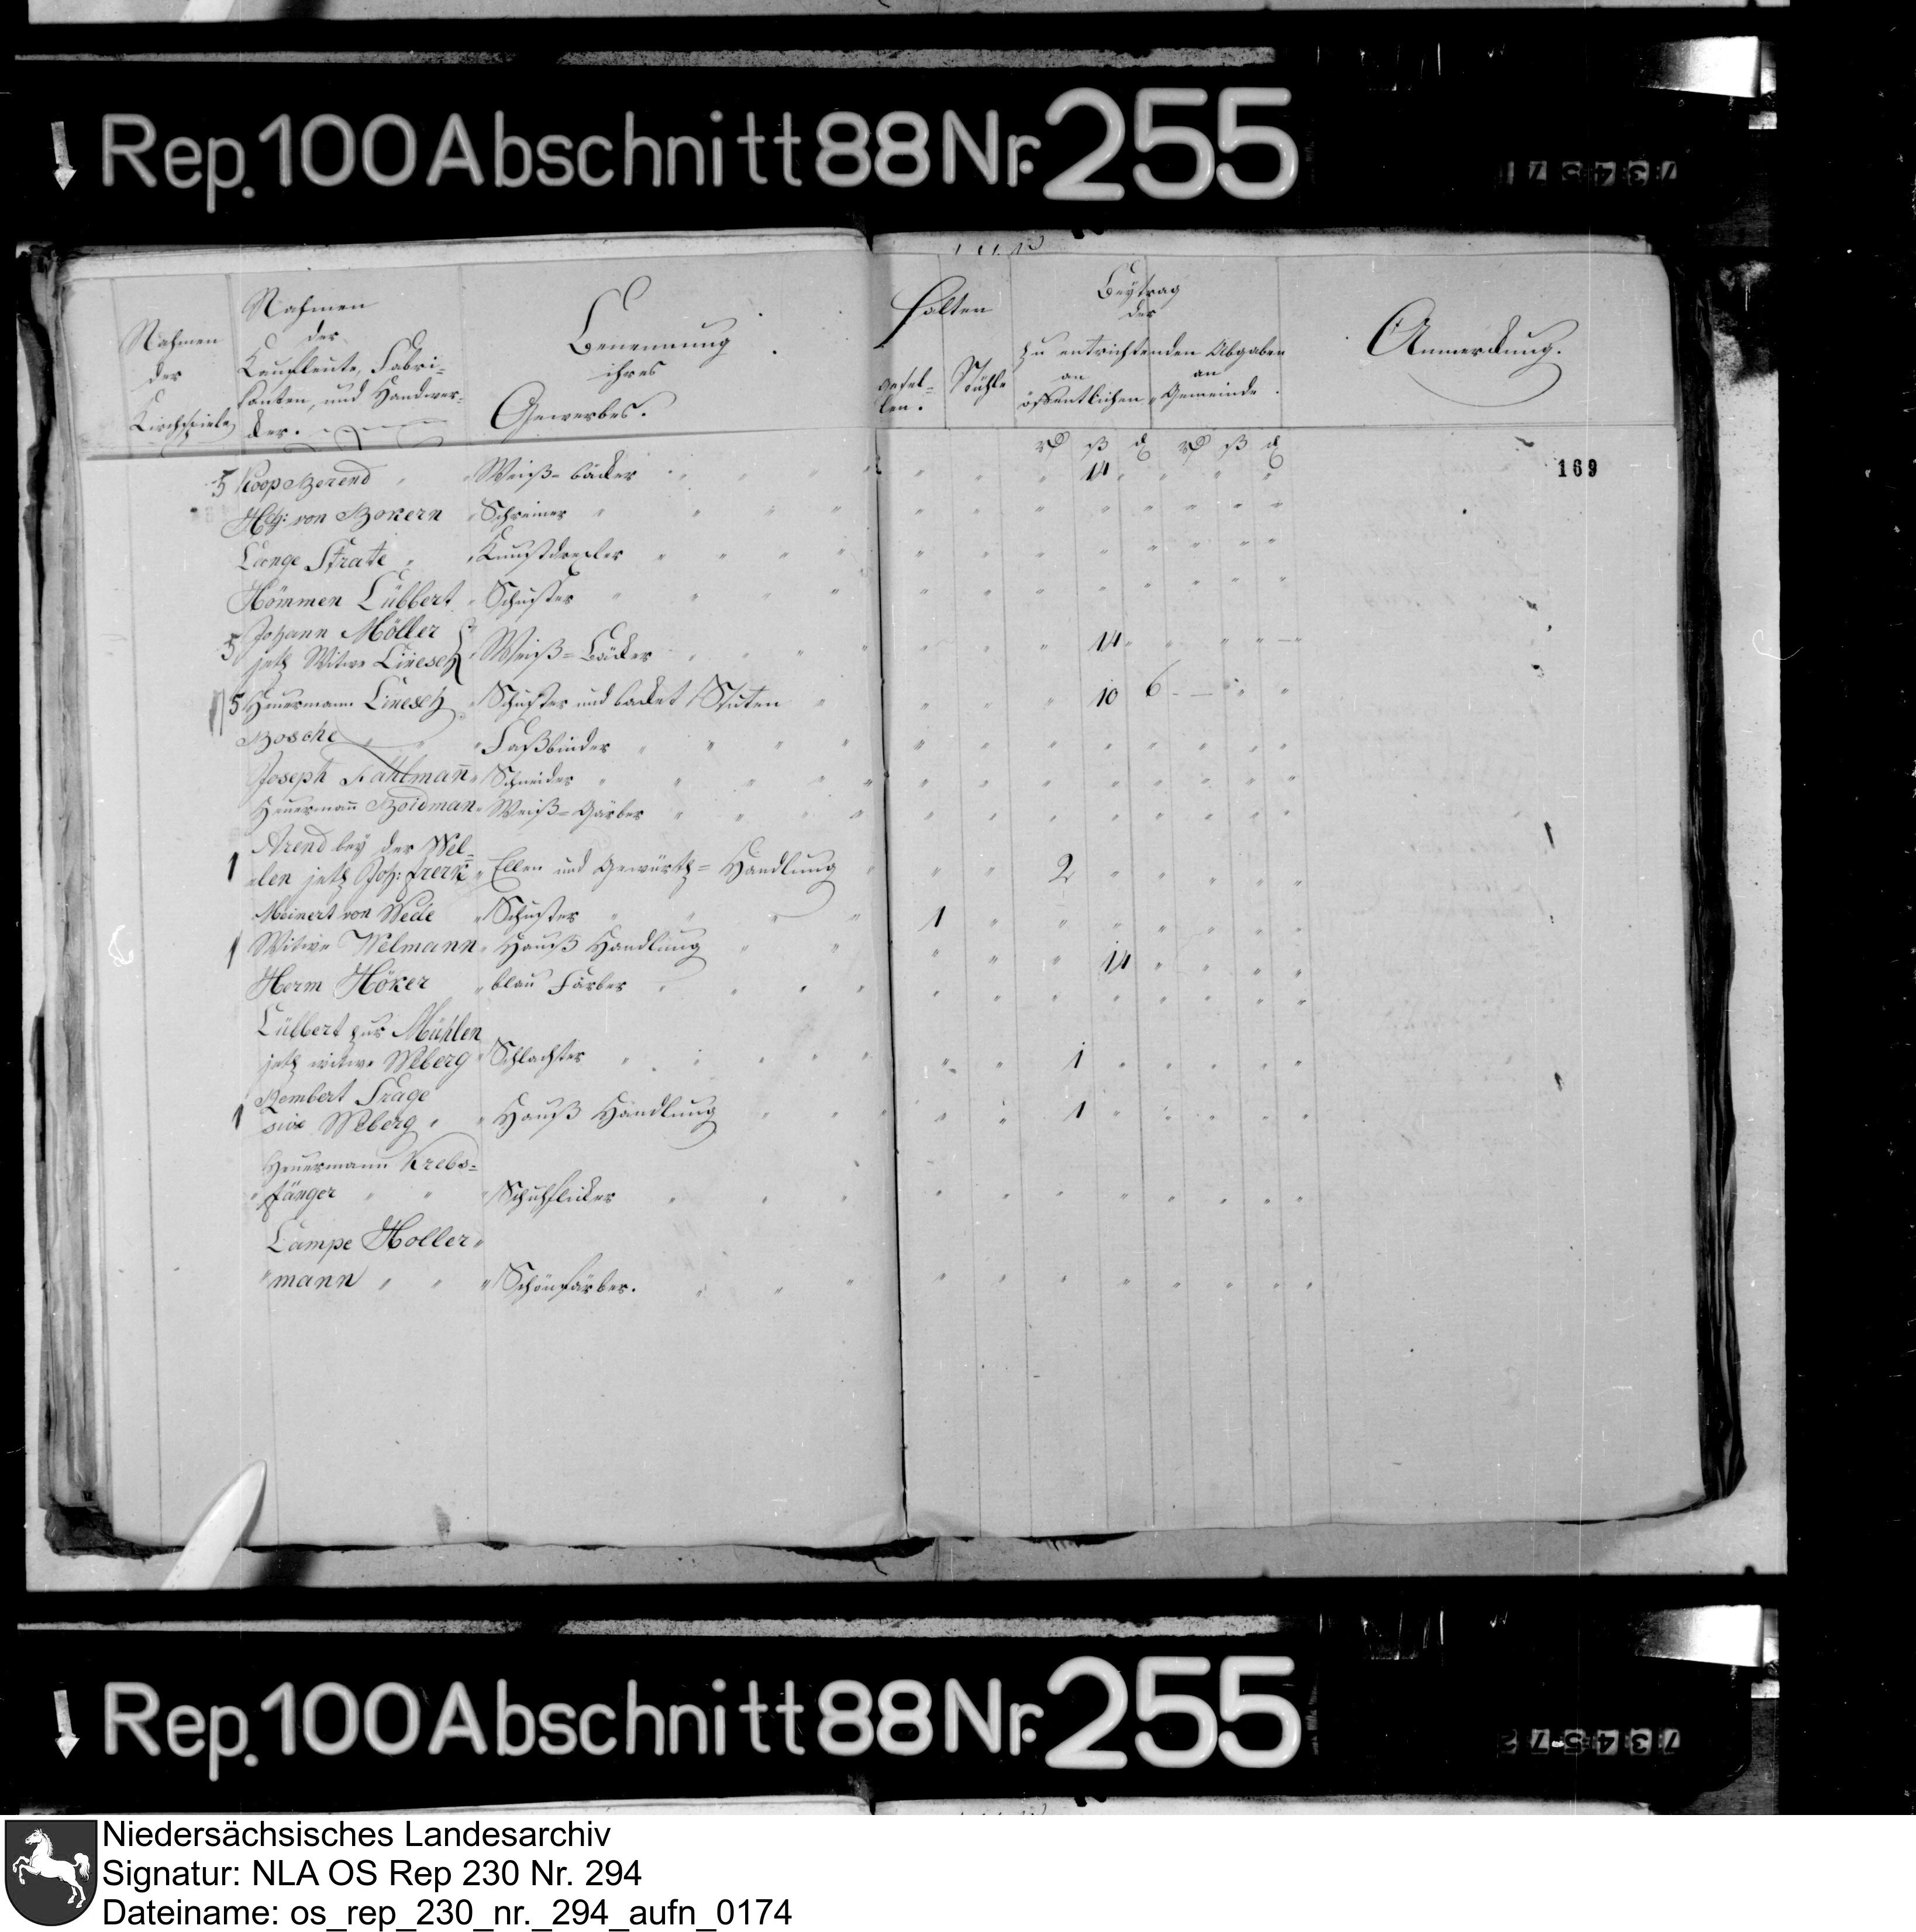 Rep. 100 Abschnitt 88 Nr. 255
Nahmen der Kirchspiele
Nahmen der Kaufleute, Fabri=
kanten, und Handwer=
cker.
Benennung ihres Gewerbes.
Halten
Gesel=
len.
Stühle
Beÿtrag der zu entrichtenden Abgaben
an öffentlichen
an Gemeinde
Anmerckung.
rth ß d rth ß d
169
5 Koop Berend " Weiß=bäcker 14
Hch: von Bokern " Schreiner
Lange Strate " Kunstdrexler
Hömmen Lübbert " Schuster
Johann Möller
5 jetz Witwe Linesch " Weiß=Bäcker 14
5 Heuermann Linesch " Schuster und backet Stuten 10 6
Bosche " Faßbinder
Joseph Kahlmañ " Schneider
Heuermann Boidman " Weiß=Gärber
Arend beÿ der Wel=
1 len jetz Joh: Frerk " Ellen und Gewürtz=Handlung 2
Meinert von Wede " Schuster 1
1 Witwe Welmann " Hauß Handlung 14
Herm Höker " blau Färber
Lübbert zur Mühlen
jetz witwe Weberg " Schlachter 1
Rembert Trage
1 sive Weberg " Hauß Handlung 1
Heuermann Krebs=
fänger " Schuhflicker
Lampe Holler"
"mann " Schönfärber.
Rep. 100 Abschnitt 88 Nr. 255
Niedersächsisches Landesarchiv
Signatur: NLA OS Rep 230 Nr. 294
Dateiname: os_rep_230_nr._294_aufn_0174